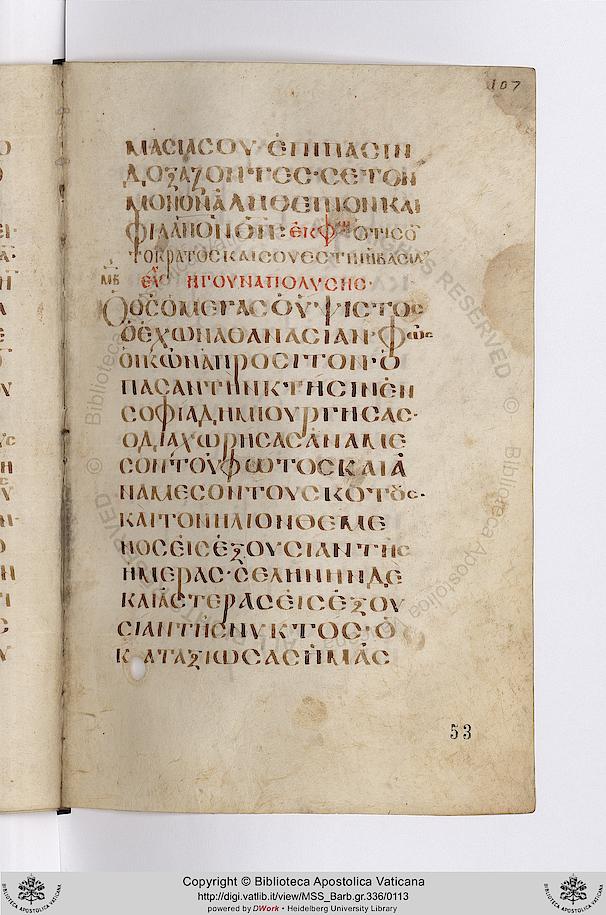 107
ΜΑСΙΑСΟΥ· ΕΠΙΠΑСΙΝ
ΔΟΞΑΖΟΝΤΕС· СΕΤΟΝ
ΜΟΝΟΝΑΛΗΘΕΙΝΟΝΚΑΙ
ΦΙΛΑΝΟΝ ΘΝ: ΕΚΦΩ ΟΤΙСΟ
ΤΟΚΡΑΤΟСΚΑΙСΟΥΕСΤΙΝΗΒΑСΙΛ
ΜΒ ΕΥΧ ΗΓΟΥΝΑΠΟΛΥСΗС·
ΟΘСΟΜΕΓΑСΟΥΨΙСΤΟС
ΟΕΧΩΝΑΘΑΝΑСΙΑΝ· ΦΩС
ΟΙΚΩΝΑΠΡΟСΙΤΟΝ· Ο
ΠΑСΑΝΤΗΝΚΤΗСΙΝΕΝ
СΟΦΙΑΔΗΜΙΟΥΡΓΗСΑС·
ΟΔΙΑΧΩΡΗСΑСΑΝΑΜΕ
СΟΝΤΟΥΦΩΤΟСΚΑΙΑ
ΝΑΜΕСΟΝΤΟΥСΚΟΤȢС·
ΚΑΙΤΟΝΗΛΙΟΝΘΕΜΕ
ΝΟСΕΙСΕΞΟΥСΙΑΝΤΗС
ΗΜΕΡΑС· СΕΛΗΝΗΝΔΕ
ΚΑΙΑСΤΕΡΑСΕΙСΕΞΟΥ
СΙΑΝΤΗСΝΥΚΤΟС· Ο
ΚΑΤΑΞΙΩСΑСΗΜΑС
53
Copyright © Biblioteca Apostolica Vaticana
http://digi.vatlib.it/view/MSS_Barb.gr.336/0113
powered by DWork • Heidelberg University Library